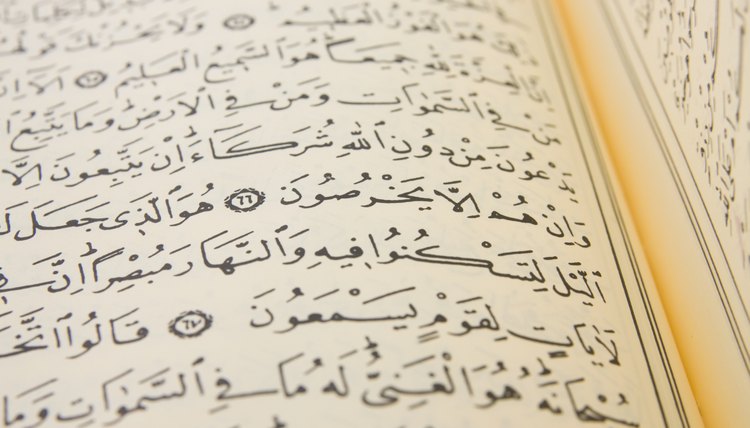 هُوَ الْفَوْزُ الْعَظِيمُ وَلَا يَحْزُنْكَ قَوْلُهُمْ
اِنَّ الْعِزَّةَ لِلّٰهِ جَمِيعًا هُوَ السَّمِيعُ الْعَلِيمُ ﴿٦٥﴾ اَلَا اِنَّ
مَنْ فِي السَّمٰوَاتِ وَمَنْ فِي الْاَرْضِ وَمَا يَتَّبِعُ
يَدْعُونَ مِنْ دُونِ اللّٰهِ شُرَكَاءَ اِنْ يَتَّبِعُونَ اِلَّا
وَاِنْ هُمْ اِلَّا يَخْرُصُونَ ﴿٦٦﴾ هُوَ الَّذِي جَعَلَ
الَّيْلَ لِتَسْكُنُوا فِيهِ وَالنَّهَارَ مُبْصِرًا اِنَّ فِي
لَاٰيَاتٍ لِقَوْمٍ يَسْمَعُونَ ﴿٦٧﴾ قَالُوا اتَّخَذَ
سُبْحَانَهُ هُوَ الْغَنِيُّ لَهُ مَا فِي السَّمٰوَاتِ وَمَا